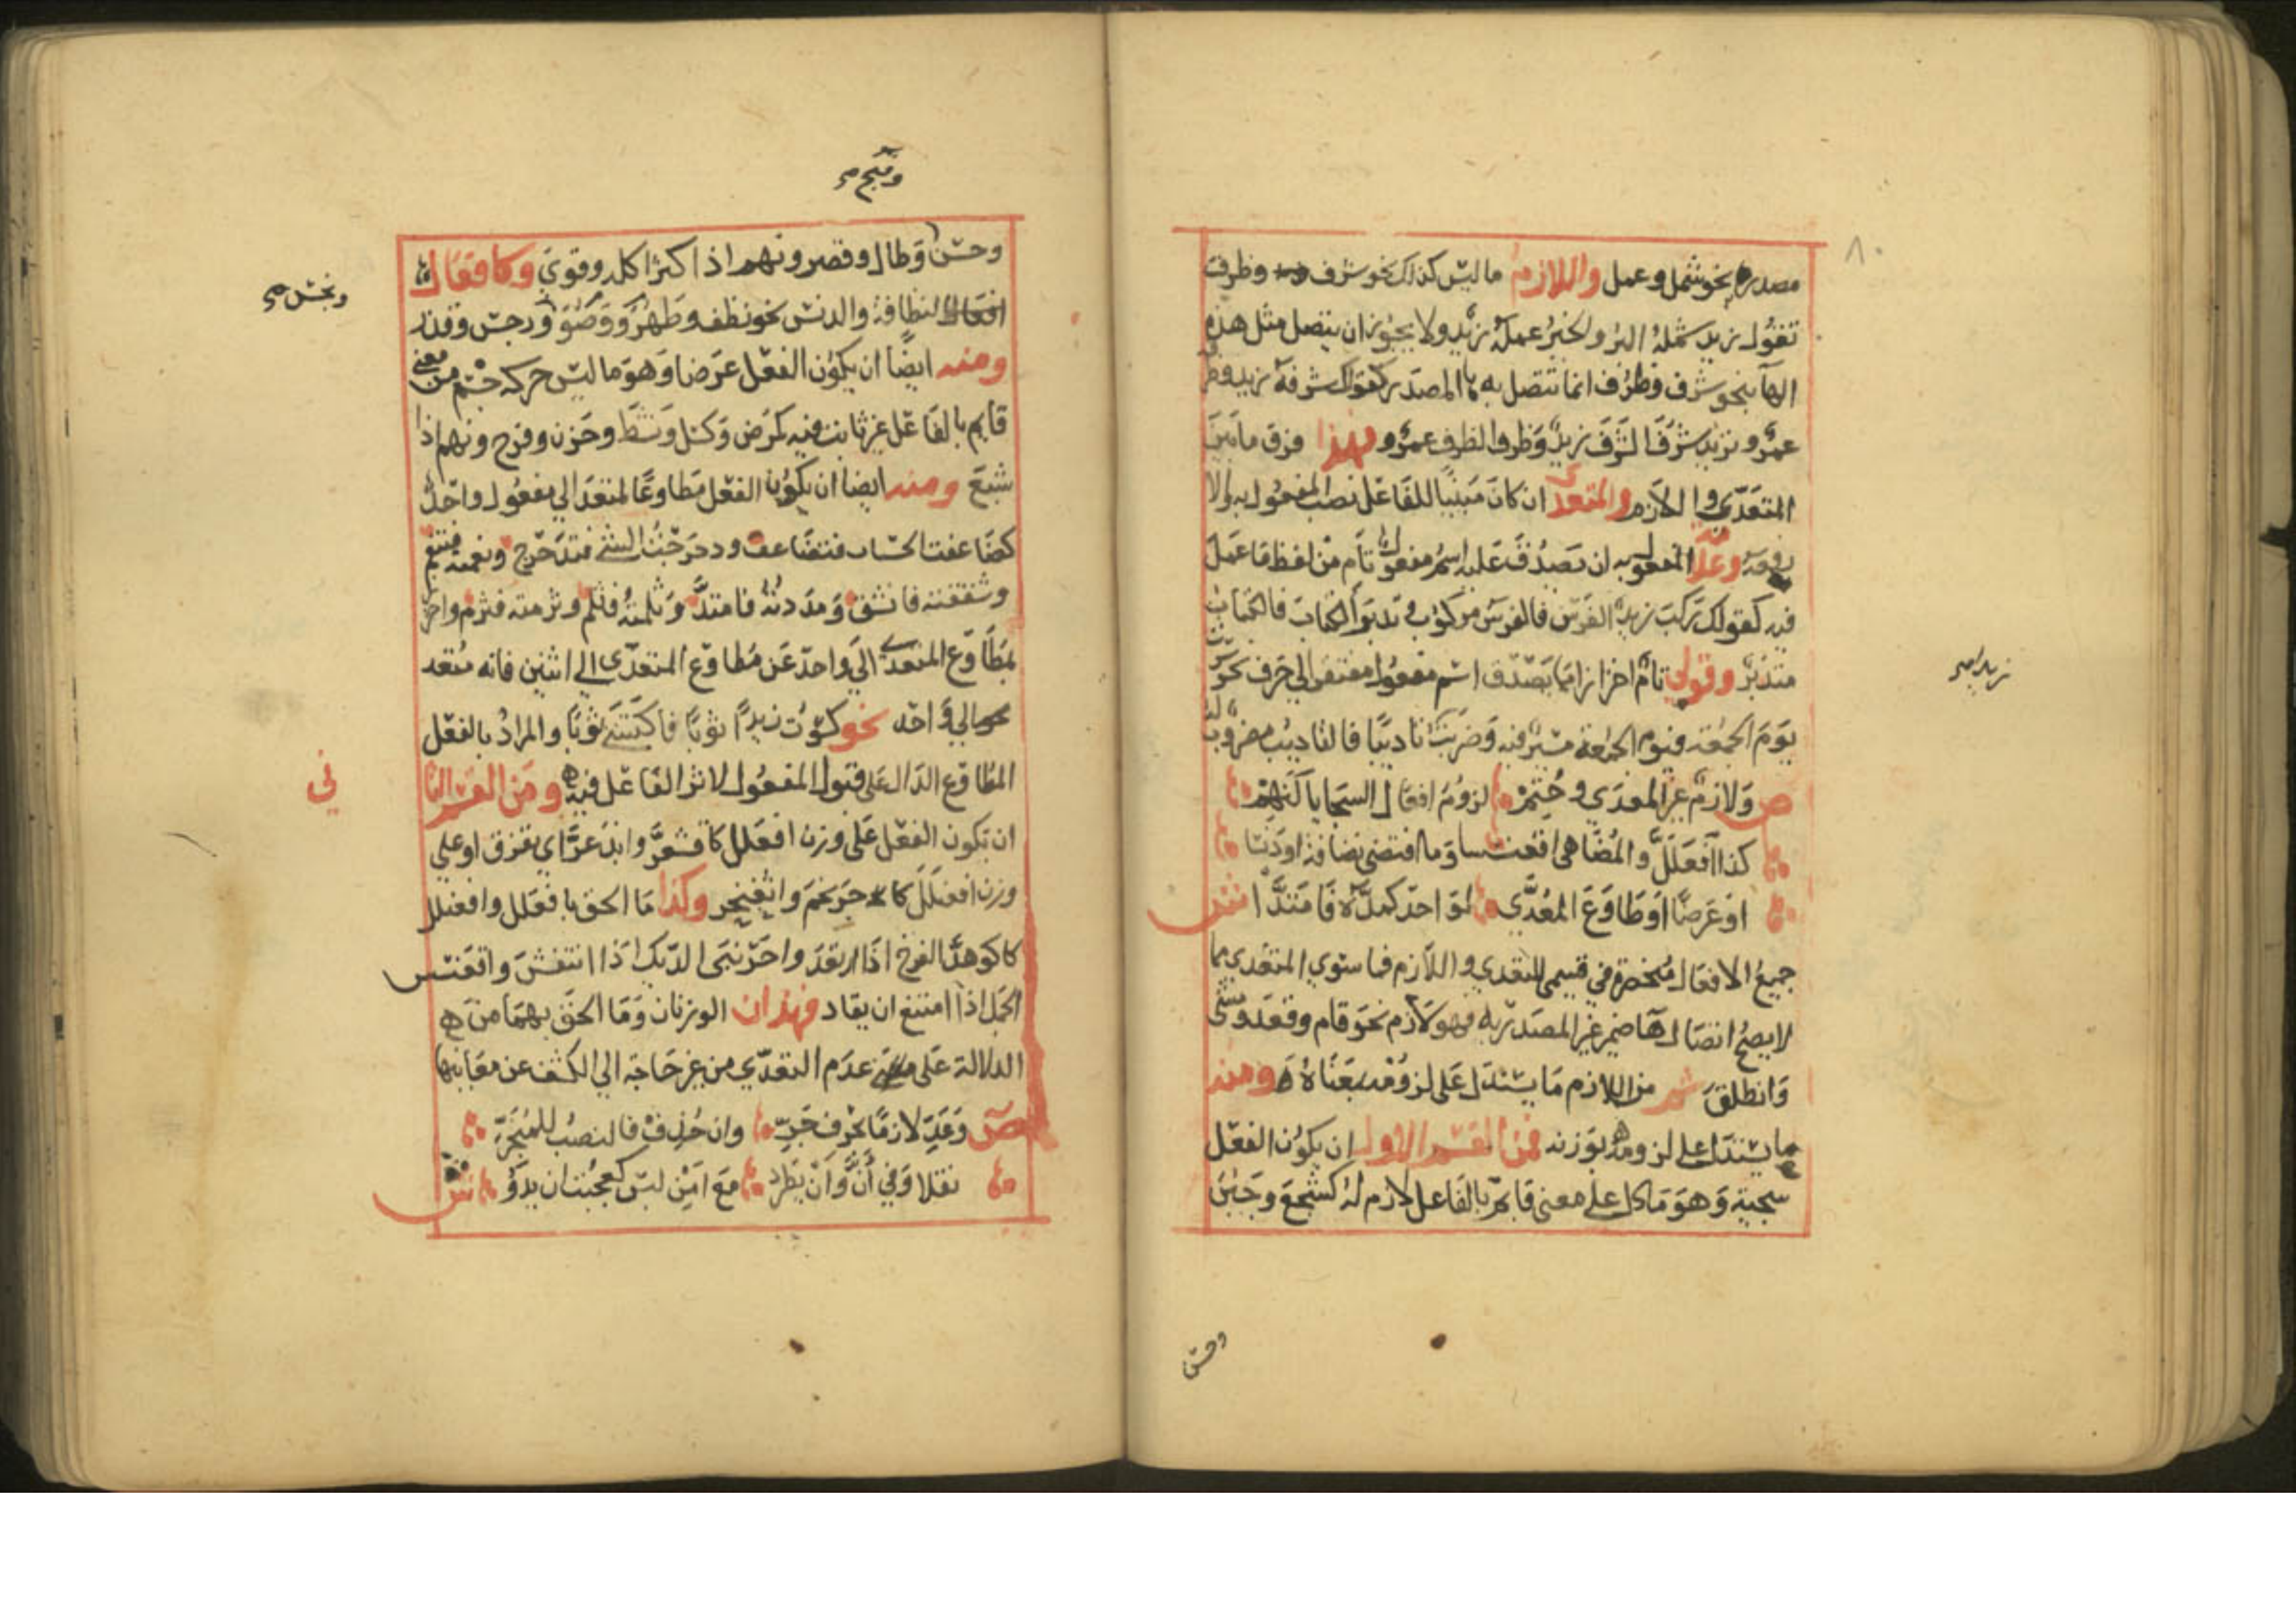 ٨٠
مصدره نحو شمل وعمل واللازم ما ليس كذلك نحو شرف وظرف
تقول زيد شمله البر والخير عمله زيد ولا يجوز ان يتصل مثل هذه
الهآ بنحو شرف وظرف انما تتصل به ها المصدر كقولك شرفه زيد وظرفه
عمرو وتريد شرف الشرف زيد وظرف الظرف عمرو فهذا فرق ما بين
المتعدي واللازم والمتعدي ان كان مبنيا للفاعل نصب المفعول به والا
رفعه وعلامة المفعول به ان تصدق عليه اسم مفعول تام من لفظ ما عمل
فيه كقولك ركب زيد الفرس فالفرس مركوب وتدبر الكتاب فالكتاب
متدبر وقولي تام احترازا مما يصدق اسم مفعول مفتقر الى حرف نحو سرت
زيد امر
يوم الجمعة فيوم الجمعة مسير فيه وضربت تاديبا فالتاديب مضروب له
ص ولازم غير المعدي وحتم لزوم افعال السجايا كنهم
كذا افعلل والمضاهي اقعنسسا وما اقتضى نضافة او دنسا
او عرضا او طاوع المعدي لواحد كمده فامتدا ش
جميع الافعال منحصرة في قسمي المتعدي واللازم فما سوي المتعدي مما
لا يصح اتصال ها ضمير غير المصدر به فهو لازم نحو قام وقعد ومشى
وانطلق ثم من اللازم ما يستدل على لزومه بمعناه ومنه
ما يستدل على لزومه بوزنه فمن القسم الاول ان يكون الفعل
سجية وهو ما دل على معنى قايم بالفاعل لازم له كشجع وجبن
وحسن
وقبح صح
وحسن وطال وقصر ونهم اذا كثر اكله وقوي وكافعال
النظافة والدنس نحو نظف وطهر ووضؤ ورجس وقذر
ونجس صح
ومنه ايضا ان يكون الفعل عرضا وهو ما ليس حركة جسم من معنى
قايم بالفاعل غير ثابت فيه كمرض وكسل ونشط وحزن وفرح ونهم اذا
شبع ومنه ايضا ان يكون الفعل مطاوعا لمتعد الي مفعول واحد
كضاعفت الحساب فتضاعف ودحرجت الشئ فتدحرج ونعمته فتنعم
وشققته فانشق ومددته فامتد وثلمته فثلم وثرمته فثرم واحترز
بمطاوع المتعدي الي واحد عن مطاوع المتعدي الي اثنين فانه متعد
الي واحد نحو كسوت زيدا ثوبا فاكتسى ثوبا والمراد بالفعل
المطاوع الدال على قبول المفعول لاثر الفاعل فيه ومن القسم الثا
ني
ان تكون الفعل على وزن افعلل كاقشعر وابذعر اي تفرق او على
وزن افعنلل كاحرنجم واثعنجر وكذا ما الحق بافعلل وافعنلل
كاكوهد الفرخ اذا ارتعد واحرنبى الديك اذا انتفش واقعنسس
الجمل اذا امتنع ان يقاد فهذان الوزنان وما الحق بهما من
الدلالة على عدم التعدي من غير حاجة الي الكشف عن معانيها
ص وعد لازما بحرف جر وان حذف فالنصب للمنجر
نقلا وفي أن وأن يطرد مع امن لبس كعجبت ان يدو ش